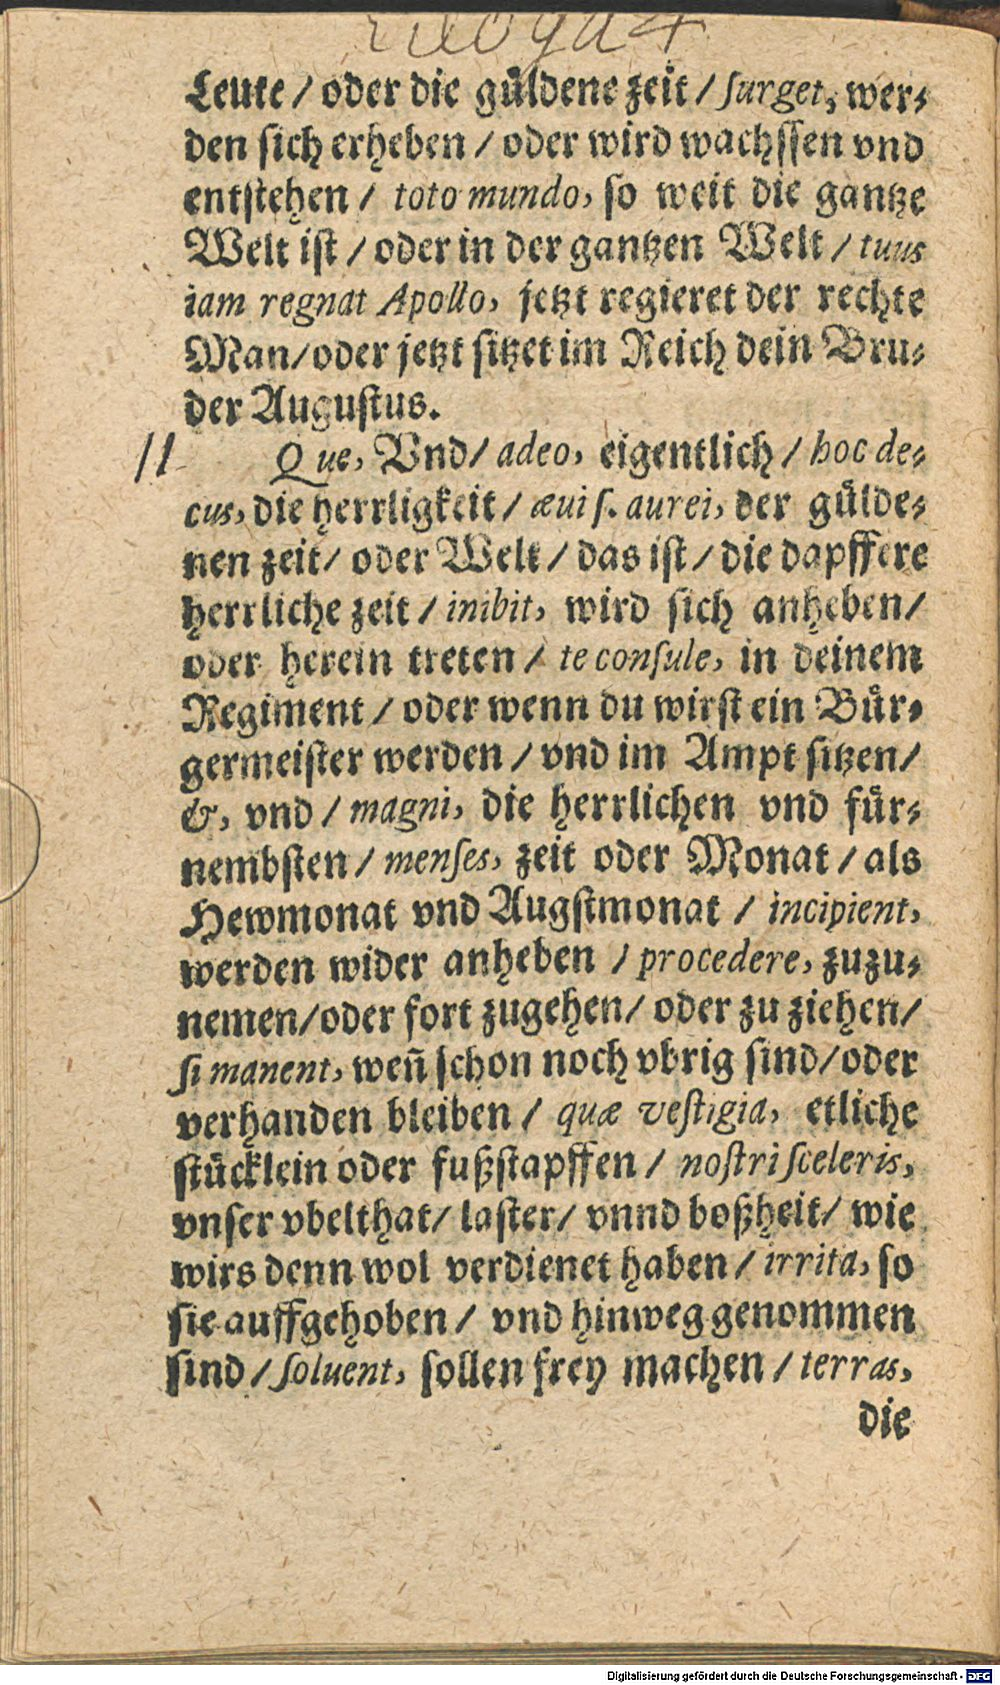 Eclloga 4
Leute / oder die guͤldene zeit / ſurget, wer⸗
den ſich erheben / oder wird wachſſen vnd
entſtehen / toto mundo, ſo weit die gantze
Welt iſt / oder in der gantzen Welt / tuus
iam regnat Apollo, jetzt regieret der rechte
Man/oder jetzt ſitzet im Reich dein Bru⸗
der Auguſtus.
11 Que, Vnd/ adeo, eigentlich / hoc de⸗
cus, die herrligkeit / æui ſ. aurei, der guͤlde⸗
nen zeit/ oder Welt / das iſt / die dapffere
herrliche zeit / inibit, wird ſich anheben/
oder herein treten / te conſule, in deinem
Regiment / oder wenn du wirſt ein Buͤr⸗
germeiſter werden / vnd im Ampt ſitzen/
&, vnd / magni, die herrlichen vnd fuͤr⸗
nembſten / menſes, zeit oder Monat / als
Hewmonat vnd Augſtmonat / incipient,
werden wider anheben / procedere, zuzu⸗
nemen/oder fort zugehen/ oder zu ziehen/
ſi manent, weñ ſchon noch vbrig ſind/oder
verhanden bleiben / quæ veſtigia, etliche
ſtuͤcklein oder fußſtapffen / noſtri ſceleris,
vnſer vbelthat/ laſter/ vnnd boßheit/ wie
wirs denn wol verdienet haben / irrita, ſo
ſie auffgehoben / vnd hinweg genommen
ſind / ſoluent, ſollen frey machen / terras,
die
Digitalisierung gefördert durch die Deutsche Forschungsgemeinschaft - DFG